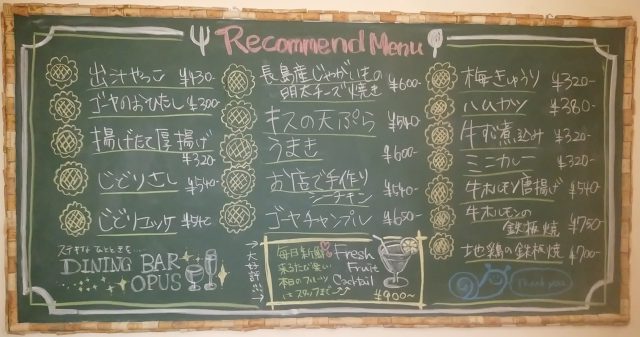 Recommend Menu
出汁やっこ ¥430-
ゴーヤのおひたし ¥300
揚げたて厚揚げ
¥320
じどりさし ¥540-
じどりコロッケ ¥540
ステキなひとときを…
DINING BAR
OPUS
長島産じゃがいもの
明太チーズ焼き ¥600-
キスの天ぷら ¥540
うまき ¥600-
お店で手作り
シーチキン ¥540-
ゴーヤチャンプル ¥650-
大好評!!
毎日新鮮
来るたび楽しい
本日のフルーツ
はスタッフまで
Fresh
Fruit
Cocktail
¥900~
梅きゅうり ¥320-
ハムカツ ¥380-
牛すじ煮込み ¥320-
ミニカレー ¥320-
牛ホルモン唐揚げ ¥540-
牛ホルモンの
鉄板焼 ¥750
地鶏の鉄板焼 ¥700-
Thank you